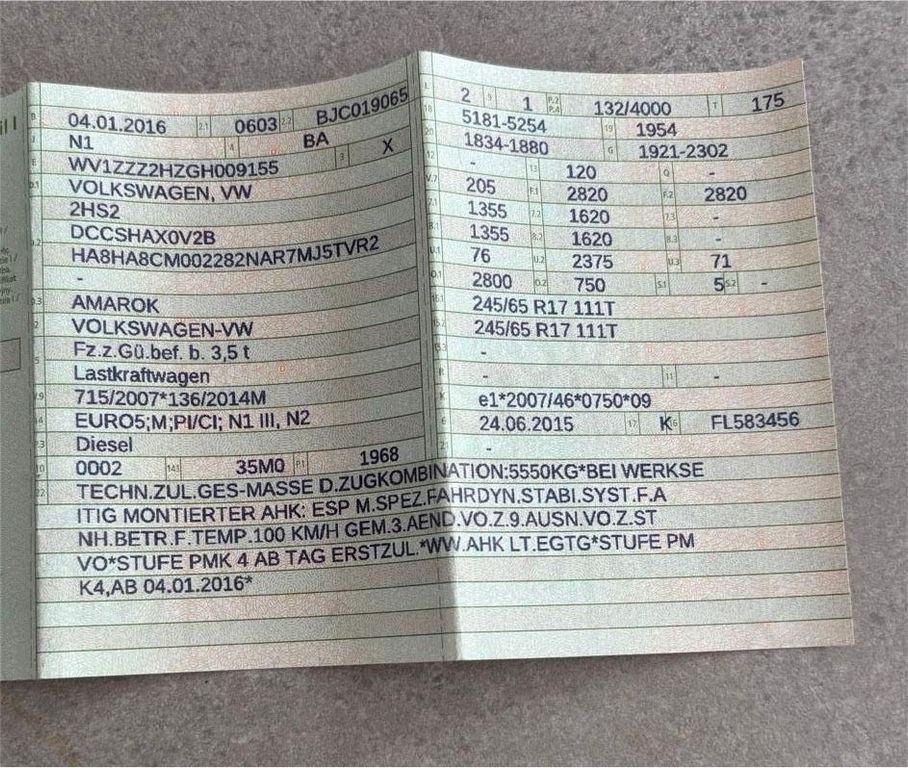 B 04.01.2016 2.1 0603 2.2 BJC019065
J N1 4 BA
E WV1ZZZ2HZGH009155 3 X
D.1 VOLKSWAGEN, VW
2HS2
D.2 DCCSHAX0V2B
HA8HA8CM002282NAR7MJ5TVR2
-
D.3 AMAROK
2 VOLKSWAGEN-VW
5 Fz.z.Gü.bef. b. 3,5 t
Lastkraftwagen
V.9 715/2007*136/2014M
EURO5;M;PI/CI; N1 III, N2
P.3 Diesel
10 0002 14.1 35M0 P.1 1968
L 2 9 1 P.2 P.4 132/4000 T 175
18 5181-5254 19 1954
20 1834-1880 G 1921-2302
12 - 13 120 Q -
V.7 205 F.1 2820 F.2 2820
7.1 1355 7.2 1620 7.3 -
8.1 1355 8.2 1620 8.3 -
U.1 76 U.2 2375 U.3 71
O.1 2800 O.2 750 S.1 5 S.2 -
15.1 245/65 R17 111T
15.2 245/65 R17 111T
15.3 -
R - 11 -
K e1*2007/46*0750*09
6 24.06.2015 17 K 16 FL583456
21 -
22 TECHN.ZUL.GES-MASSE D.ZUGKOMBINATION:5550KG*BEI WERKSE
ITIG MONTIERTER AHK: ESP M.SPEZ.FAHRDYN.STABI.SYST.F.A
NH.BETR.F.TEMP.100 KM/H GEM.3.AEND.VO.Z.9.AUSN.VO.Z.ST
VO*STUFE PMK 4 AB TAG ERSTZUL.*WW.AHK LT.EGTG*STUFE PM
K4,AB 04.01.2016*